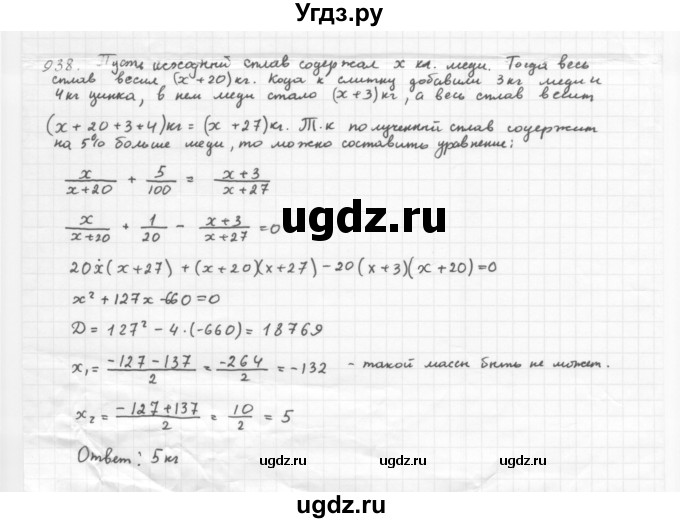 Угдз.ру
938. Пусть исходный сплав содержал x кг. меди. Тогда весь
сплав весил (x+20) кг. Кода к слитку добавили 3 кг меди и
4 кг цинка, в нем меди стало (x+3) кг, а весь сплав весит
(x+20+3+4) кг = (x+27) кг. Т.к полученный сплав содержит
на 5% больше меди, то можно составить уравнение:
x/(x+20) + 5/100 = (x+3)/(x+27)
x/(x+20) + 1/20 - (x+3)/(x+27) = 0
ugdz.ru
20x(x+27) + (x+20)(x+27) - 20(x+3)(x+20) = 0
x² + 127x - 660 = 0
D = 127² - 4·(-660) = 18769
x₁ = (-127-137)/2 = -264/2 = -132 - такой массы быть не может.
x₂ = (-127+137)/2 = 10/2 = 5
Ответ: 5 кг
ugdz.ru ugdz.ru
ugdz.ru